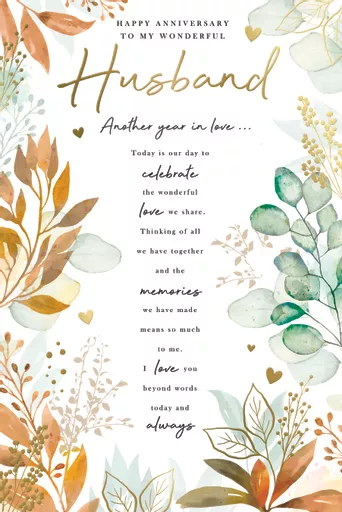 HAPPY ANNIVERSARY
TO MY WONDERFUL
Husband
Another year in love ...
Today is our day to
celebrate
the wonderful
love we share.
Thinking of all
we have together
and the
memories
we have made
means so much
to me.
I love you
beyond words
today and
always